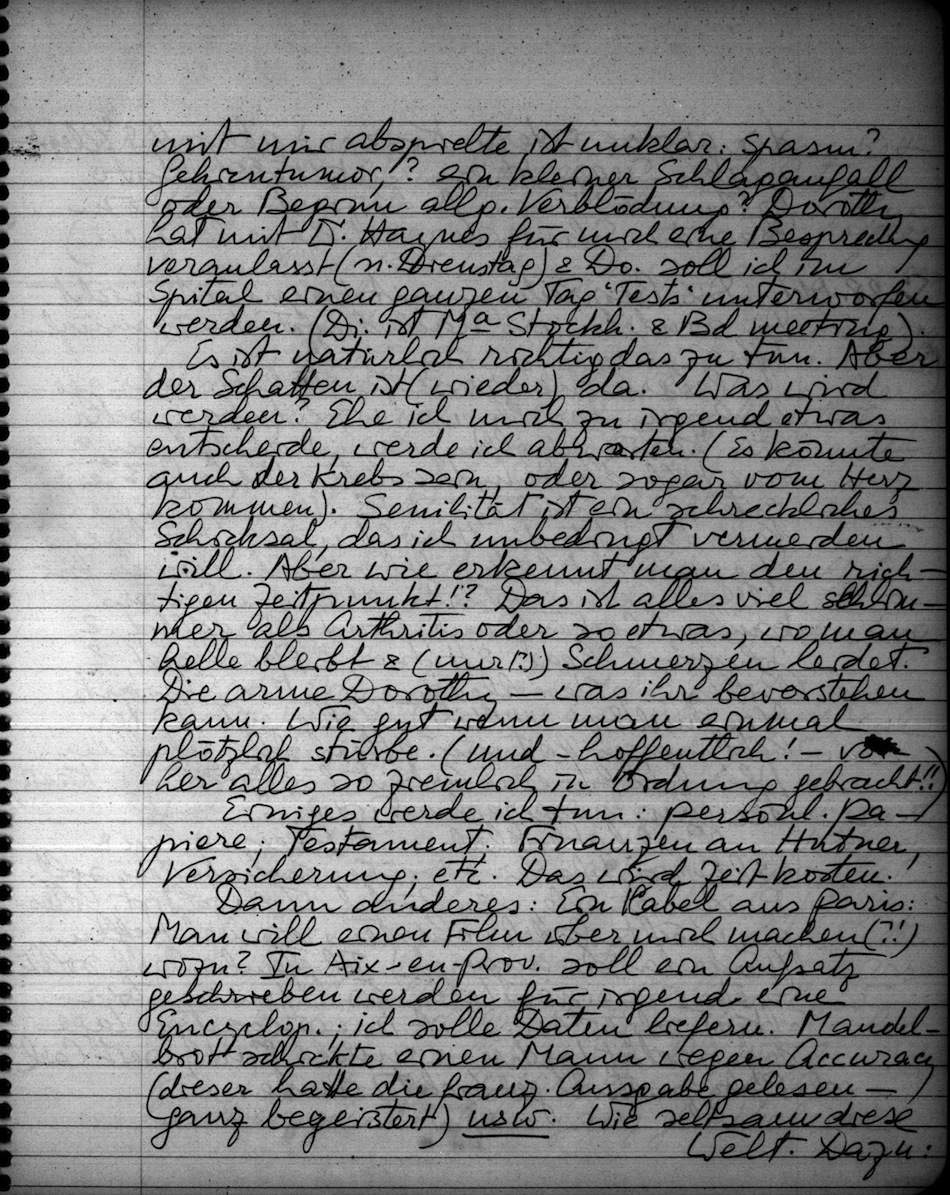 mit mir abspielte, ist unklar: Spasm?
Gehirntumor,? ein kleiner Schlaganfall
oder Beginn allg. Verblödung? Dorothy
hat mit D. Haynes für mich eine Besprechung
veranlasst (n. Dienstag) & Do. soll ich im
Spital einen ganzen Tag 'Tests' unterworfen
werden. (Di. ist Ma Stockh. & Bd meeting).
Es ist natürlich richtig das zu tun. Aber
der Schatten ist (wieder) da. Was wird
werden? Ehe ich mich zu irgend etwas
entscheide, werde ich abwarten. (Es könnte
auch der Krebs sein, oder sogar vom Herz
kommen). Senilität ist ein schreckliches
Schicksal, das ich unbedingt vermeiden
will. Aber wie erkennt man den rich-
tigen Zeitpunkt!? Das ist alles viel schlim-
mer als Arthritis oder so etwas, wo man
helle bleibt & (nur (?)) Schmerzen leidet.
Die arme Dorothy – was ihr bevorstehen
kann. Wie gut wenn man einmal
plötzlich stürbe. (und – hoffentlich! – vor
her alles so ziemlich in Ordnung gebracht!!)
Einiges werde ich tun: persönl. Pa-
piere; Testament. Finanzen an Hutner,
Versicherung, etc. Das wird Zeit kosten.
Dann anderes: Ein Kabel aus Paris:
Man will einen Film über mich machen (?!)
wozu? In Aix-en-Prov. soll ein Aufsatz
geschrieben werden für irgend eine
Encyclop.; ich solle Daten liefern. Mandel-
brot schickte einen Mann wegen Accuracy
(dieser hatte die franz. Ausgabe gelesen –
ganz begeistert) usw. Wie seltsam diese
Welt. Dazu: